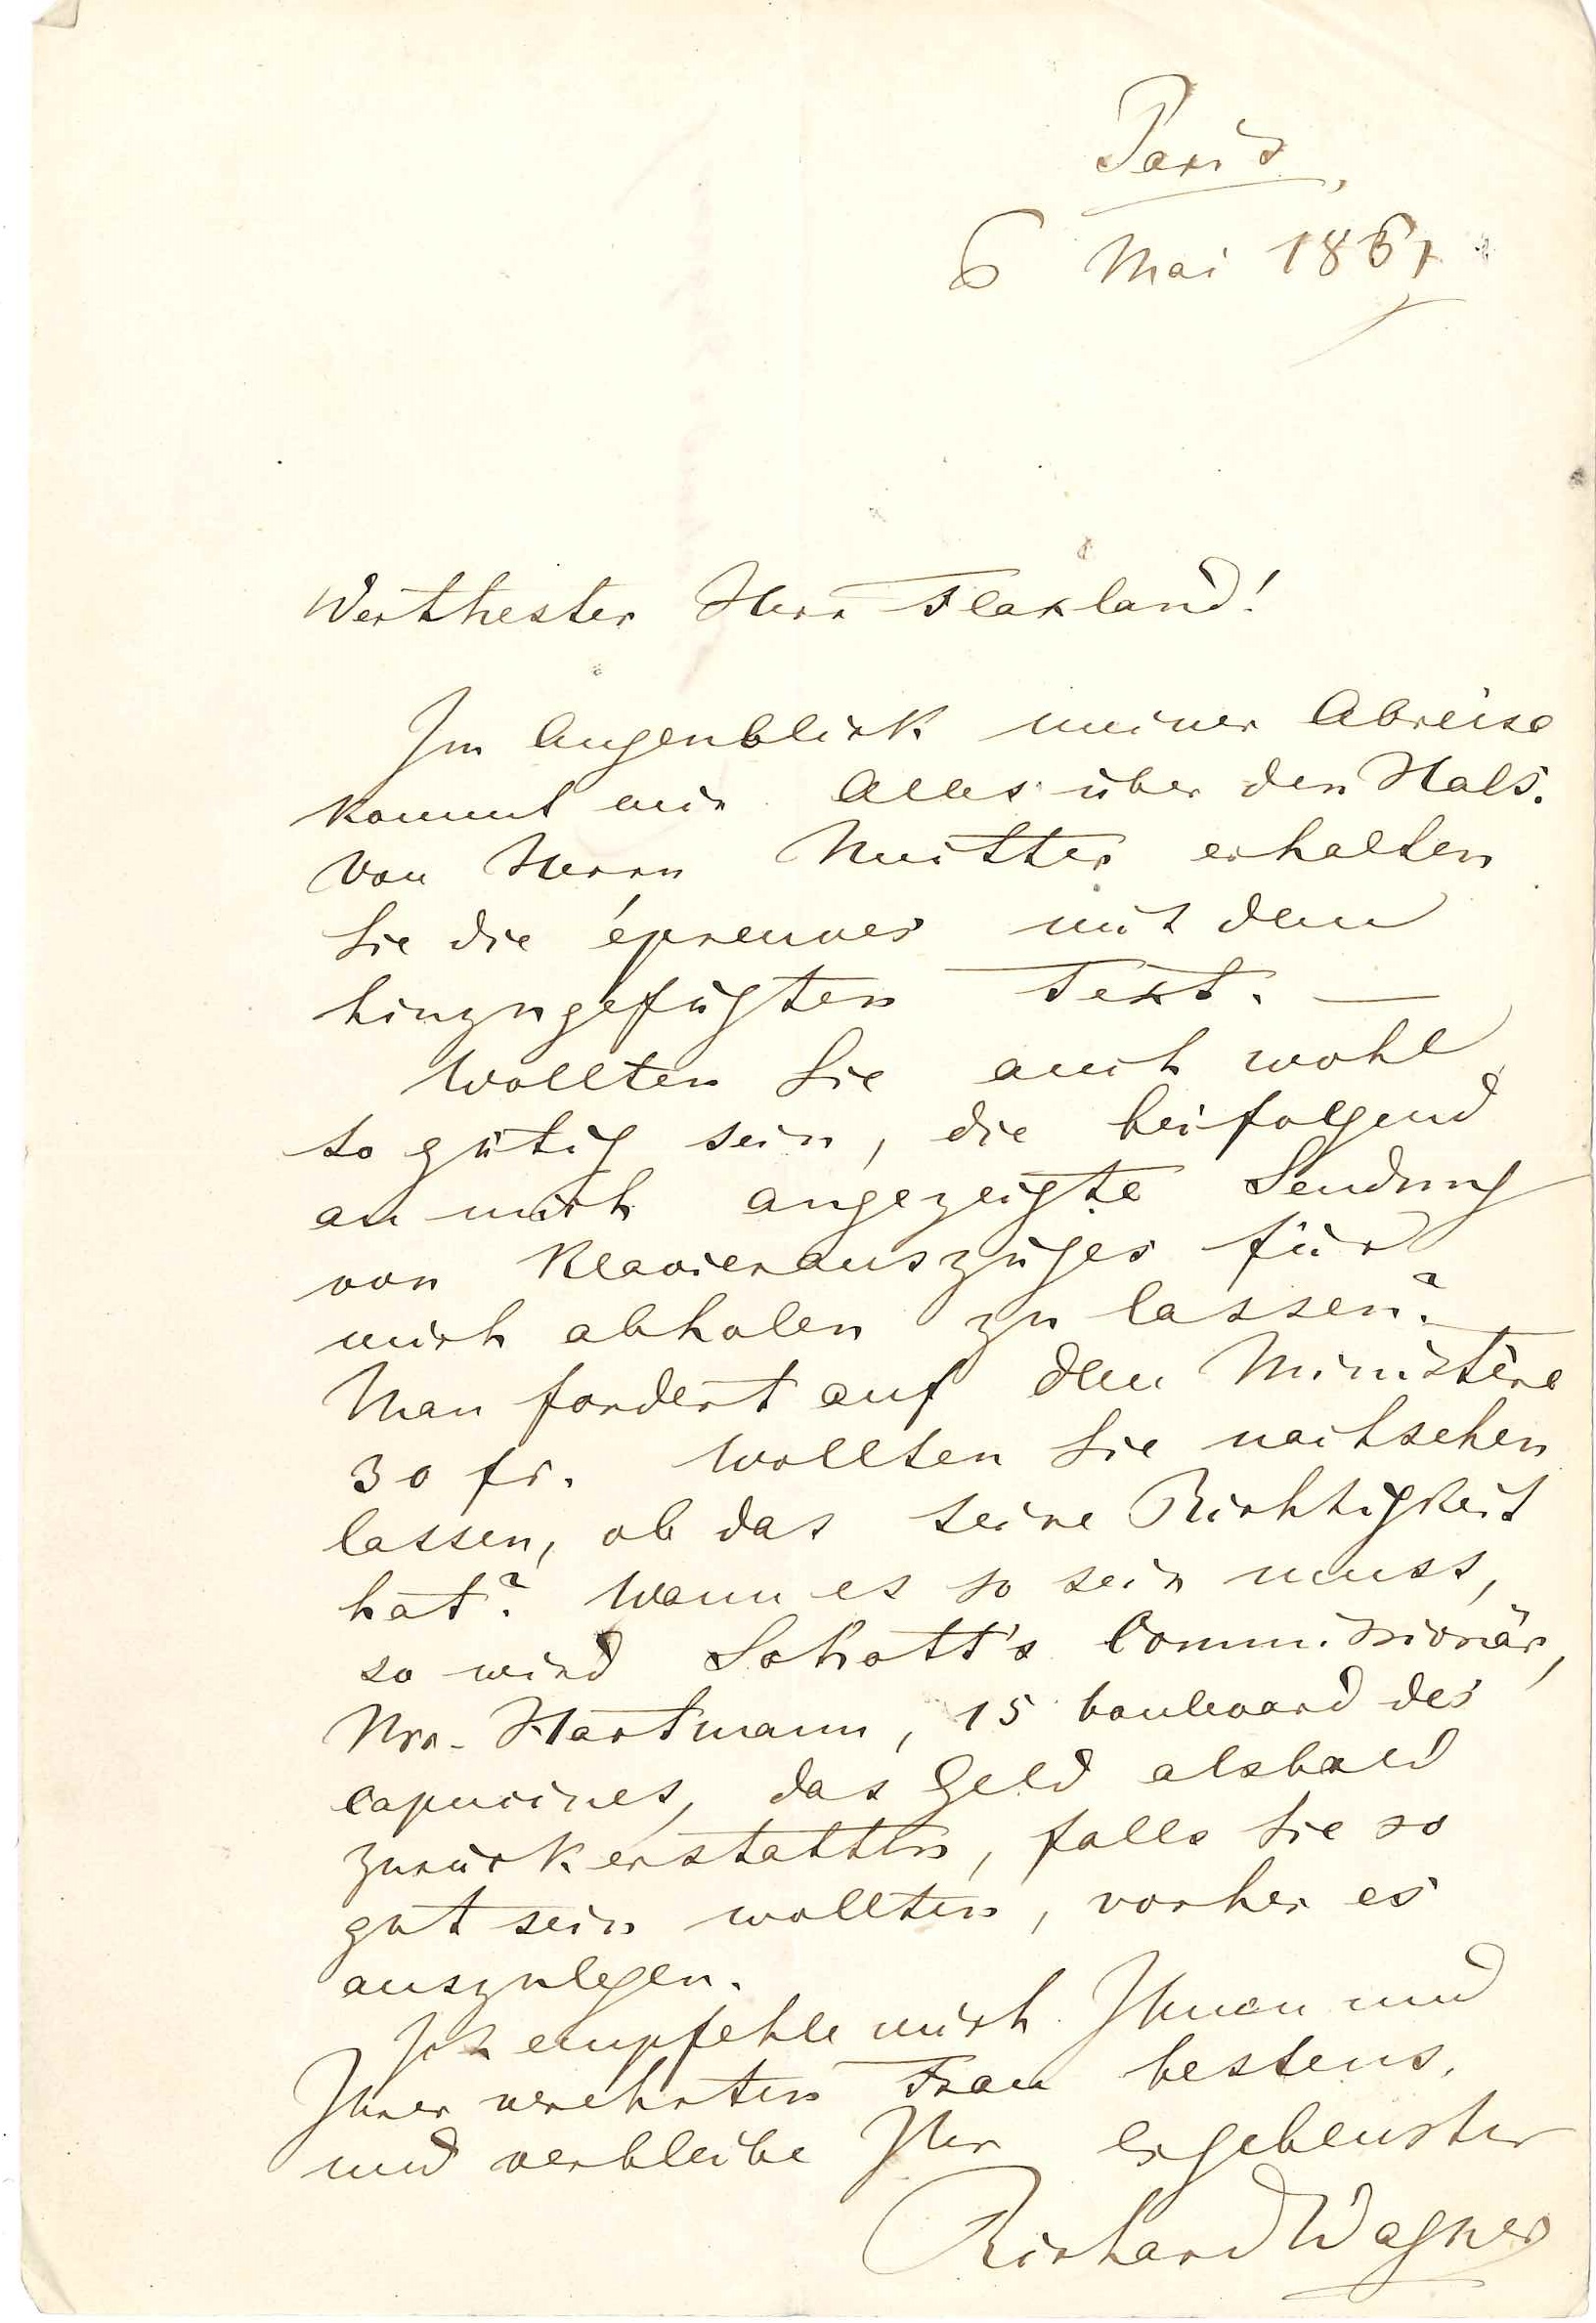 Paris,
6 Mai 1861
Werthester Herr Flaxland!
Im Augenblick meiner Abreise
kommt mir Alles über den Hals.
Von Herrn Nuitter erhalten
Sie die épreuves mit dem
hinzugefügten Text. —
Wollten Sie auch wohl
so gütig sein, die beifolgend
an mich angezeigte Sendung
von Klavierauszüges für
mich abholen zu lassen?
Man fordert auf dem Ministère
30 fr. Wollten Sie nachsehen
lassen, ob das seine Richtigkeit
hat? Wenn es so sein muss,
so wird Schott's Commissionär,
Mr. Hartmann, 15 boulevard des
Capucines, das Geld alsbald
zurückerstatten, falls Sie so
gut sein wollten, vorher es
auszulegen.
Ich empfehle mich Ihnen und
Ihrer verehrten Frau bestens,
und verbleibe Ihr ergebenster
Richard Wagner